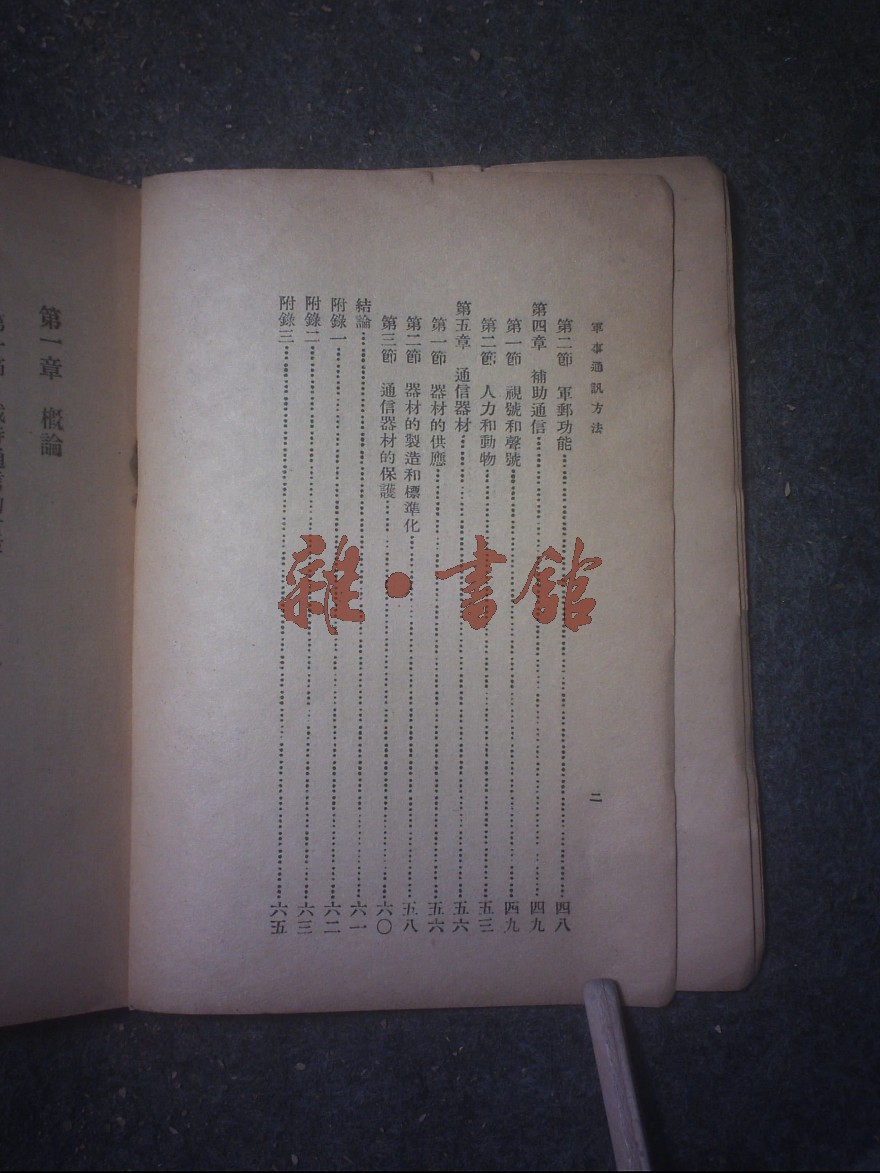 軍事通訊方法
二
第二節 軍郵功能……四八
第四章 補助通信……四九
第一節 視號和聲號……四九
第二節 人力和動物……五三
第五章 通信器材……五六
第一節 器材的供應……五六
第二節 器材的製造和標準化……五八
第三節 通信器材的保護……六〇
結論……六一
附錄一……六二
附錄二……六三
附錄三……六五
第一章 概論
雜·書館